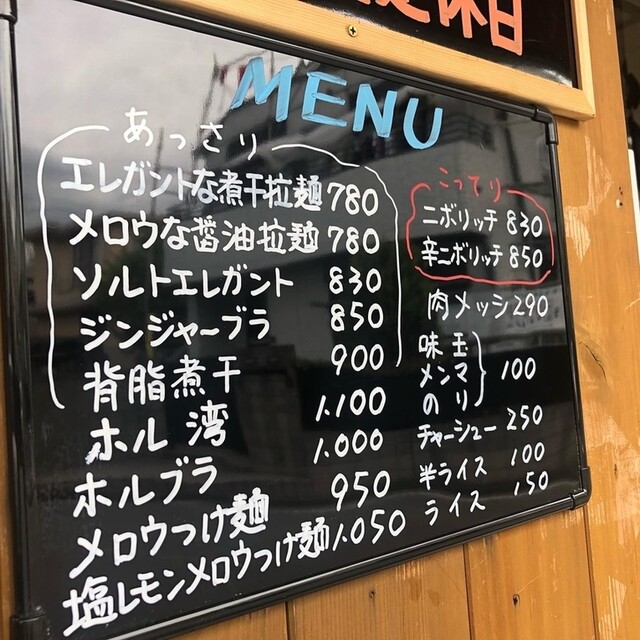 定休日
MENU
あっさり
エレガントな煮干拉麺 780
メロウな醤油拉麺 780
ソルトエレガント 830
ジンジャーブラ 850
背脂煮干 900
ホル湾 1,100
ホルブラ 1,000
メロウつけ麺 950
塩レモンメロウつけ麺 1,050
こってり
ニボリッチ 830
辛ニボリッチ 850
肉メッシ 290
味玉
メンマ 100
のり
チャーシュー 250
半ライス 100
ライス 150